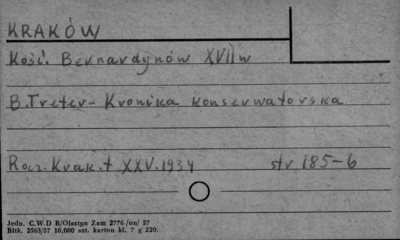 KRAKÓW
Kość. Bernardynów XVII w
B. Treter - Kronika konserwatorska
Rocz. Krak. t XXV. 1934 str 185-6
Jedn. C.W.D B/Olsztyn Zam 2776 /on/ 57
Bltk. 2563/57 10.000 szt. karton kl. 7 g 220.